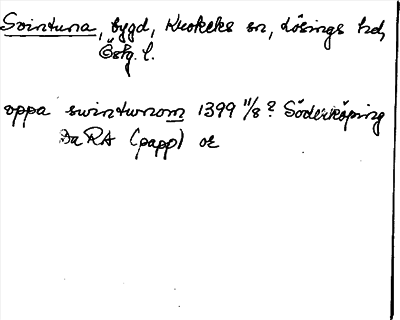 Svintuna, bygd, Krokeks sn, Lösings hd,
Östg. l.
oppa swintwnom 1399 11/8? Söderköping
Da RA (papp) or